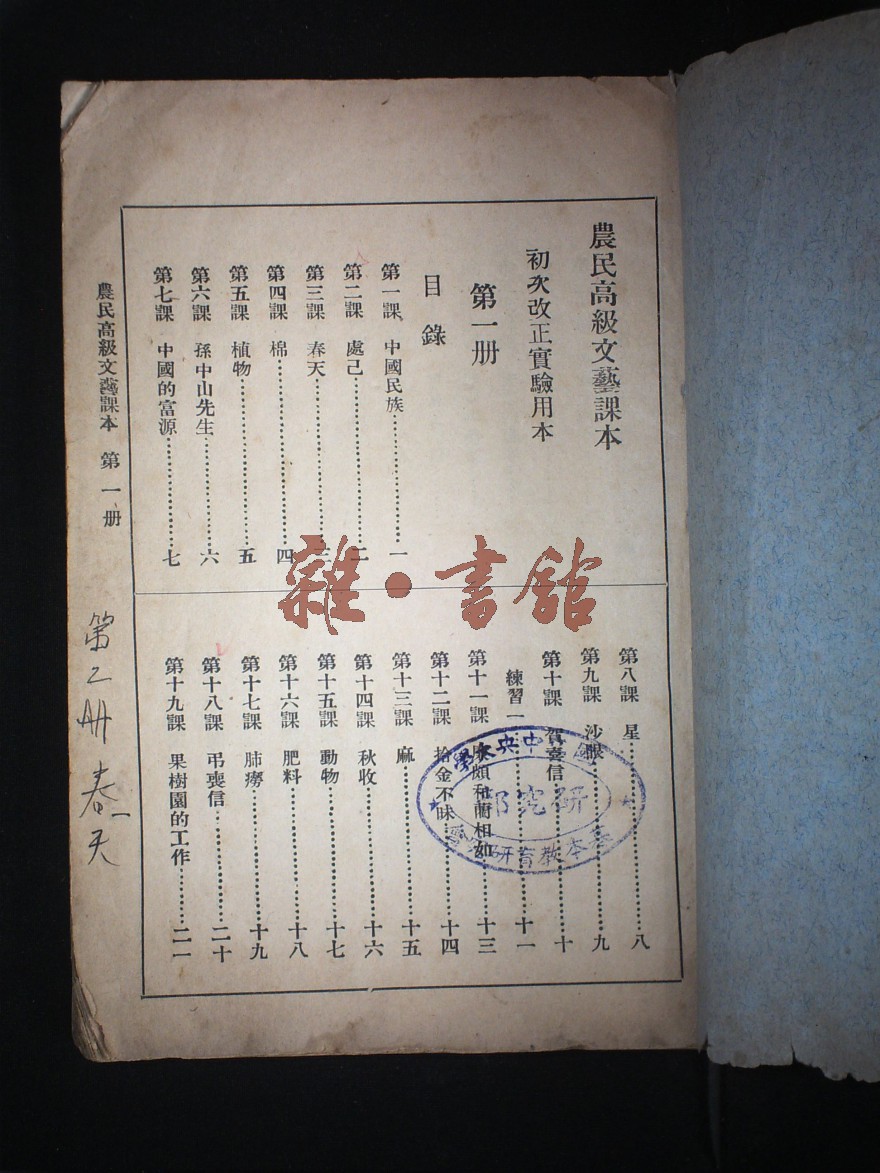 農民高級文藝課本
初次改正實驗用本
第一册
目錄
第一課 中國民族……一
第二課 處己……二
第三課 春天……三
第四課 棉……四
第五課 植物……五
第六課 孫中山先生……六
第七課 中國的富源……七
第八課 星……八
第九課 沙眼……九
第十課 賀喜信……十
練習一……十一
第十一課 廉頗和藺相如……十三
第十二課 拾金不昧……十四
第十三課 麻……十五
第十四課 秋收……十六
第十五課 動物……十七
第十六課 肥料……十八
第十七課 肺癆……十九
第十八課 弔喪信……二十
第十九課 果樹園的工作……二一
農民高級文藝課本 第一册
第2册 春天
雜·書館
中央大學
研究部
本教育研